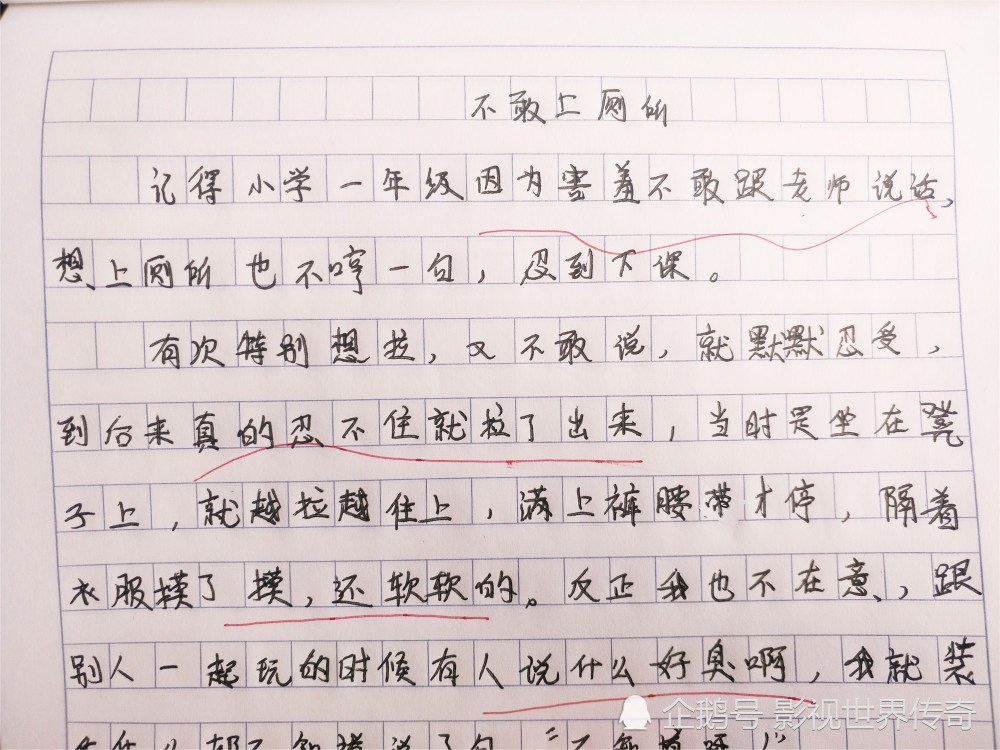 不敢上厕所
记得小学一年级因为害羞不敢跟老师说话、
想上厕所也不哼一句，忍到下课。
有次特别想拉，又不敢说，就默默忍受，
到后来真的忍不住就拉了出来，当时是坐在凳
子上，就越拉越往上，满上裤腰带才停，隔着
衣服摸了摸，还软软的。反正我也不在意，跟
别人一起玩的时候有人说什么好臭啊，我就装
企鹅号 影视世界传奇